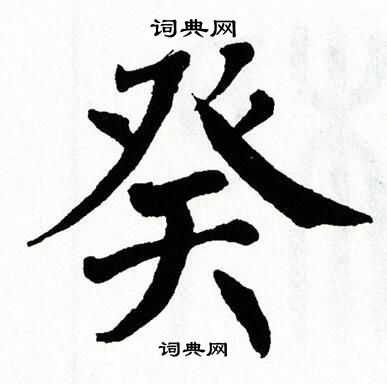 词典网
癸
词典网